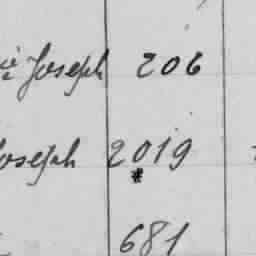 Joseph 206
Joseph 2019
*
681